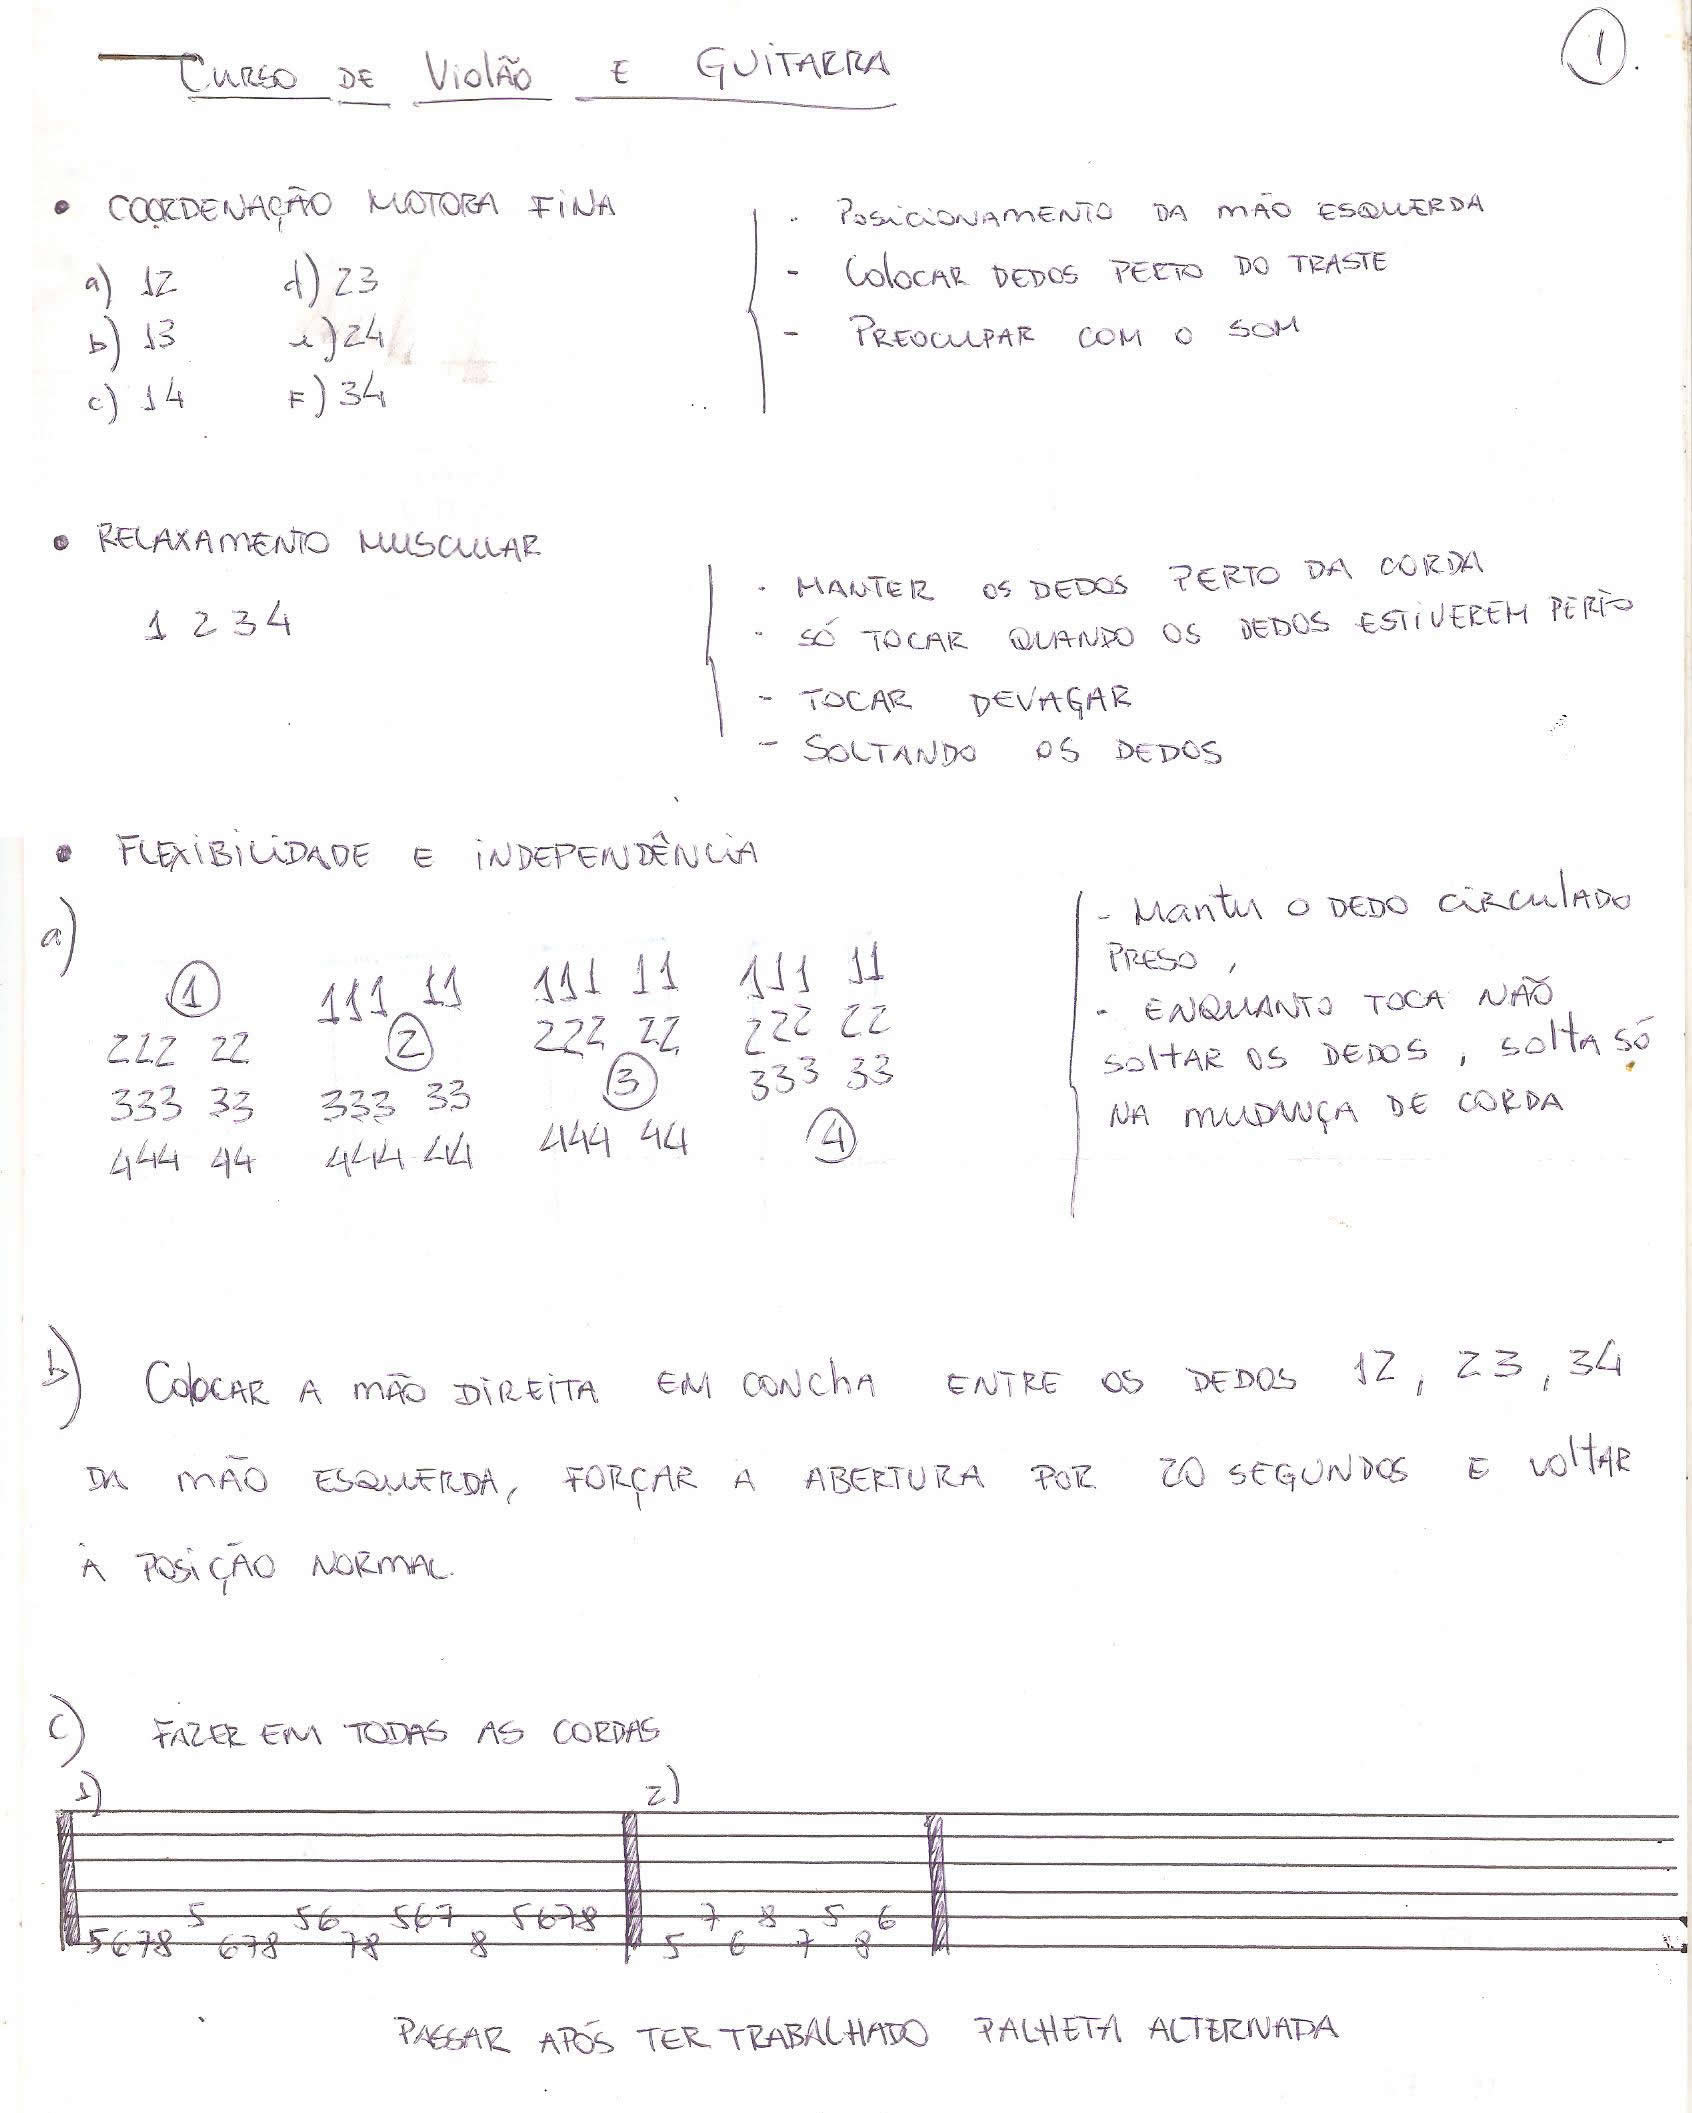 CURSO DE VIOLÃO E GUITARRA
1.
• COORDENAÇÃO MOTORA FINA
a) 12 d) 23
b) 13 e) 24
c) 14 F) 34
- POSICIONAMENTO DA MÃO ESQUERDA
- COLOCAR DEDOS PERTO DO TRASTE
- PREOCUPAR COM O SOM
• RELAXAMENTO MUSCULAR
1 2 3 4
- MANTER OS DEDOS PERTO DA CORDA
- SÓ TOCAR QUANDO OS DEDOS ESTIVEREM PERTO
- TOCAR DEVAGAR
- SOLTANDO OS DEDOS
• FLEXIBILIDADE E INDEPENDÊNCIA
a)
1 111 11 111 11 111 11
222 22 2 222 22 222 22
333 33 333 33 3 333 33
444 44 444 44 444 44 4
- Manter O DEDO CIRCULADO
PRESO,
- ENQUANTO TOCA NÃO
SOLTAR OS DEDOS, SOLTA SÓ
NA MUDANÇA DE CORDA
b) COLOCAR A MÃO DIREITA EM CONCHA ENTRE OS DEDOS 12, 23, 34
DA MÃO ESQUERDA, FORÇAR A ABERTURA POR 20 SEGUNDOS E VOLTAR
À POSIÇÃO NORMAL.
c) FAZER EM TODAS AS CORDAS
1) 2)
5 56 567 5678 7 8 5 6
5678 678 78 8 5 6 7 8
PASSAR APÓS TER TRABALHADO PALHETA ALTERNADA